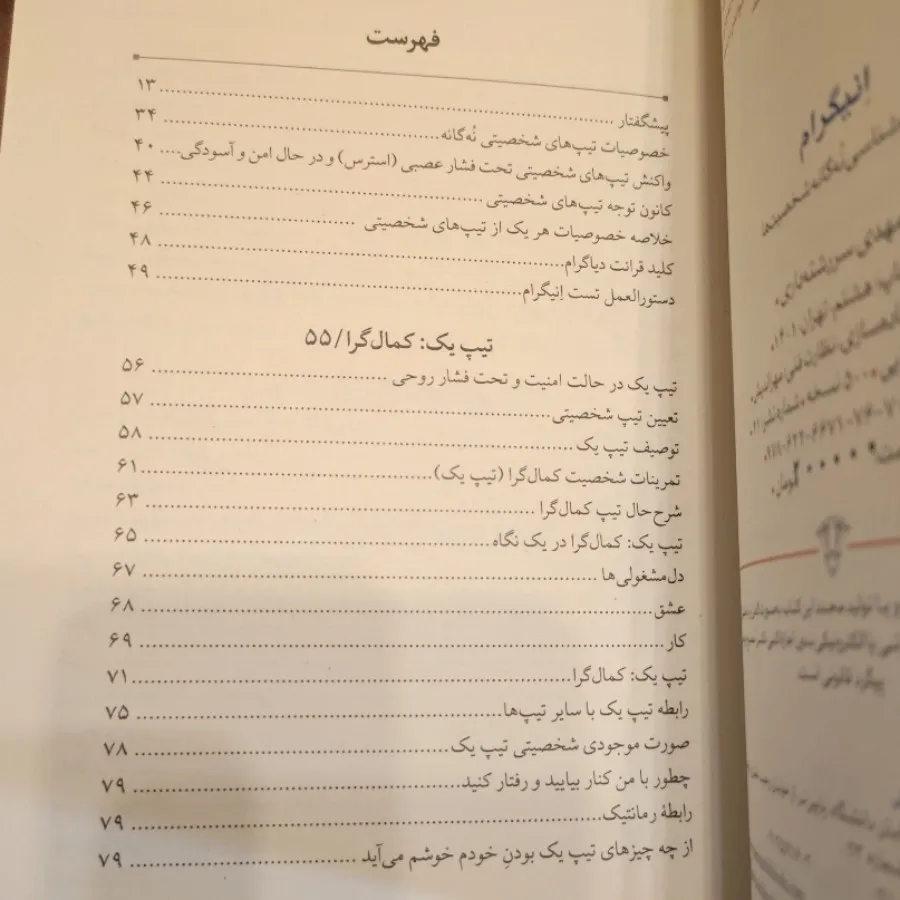 فهرست
پیشگفتار ........ ۱۳
خصوصیات تیپ‌های شخصیتی نُه‌گانه ........ ۳۴
واکنش تیپ‌های شخصیتی تحت فشار عصبی (استرس) و در حال امن و آسودگی .... ۴۰
کانون توجه تیپ‌های شخصیتی ........ ۴۴
خلاصه خصوصیات هر یک از تیپ‌های شخصیتی ........ ۴۶
کلید قرائت دیاگرام ........ ۴۸
دستورالعمل تست اِنیگرام ........ ۴۹
تیپ یک: کمال‌گرا/۵۵
تیپ یک در حالت امنیت و تحت فشار روحی ........ ۵۶
تعیین تیپ شخصیتی ........ ۵۷
توصیف تیپ یک ........ ۵۸
تمرینات شخصیت کمال‌گرا (تیپ یک) ........ ۶۱
شرح‌حال تیپ کمال‌گرا ........ ۶۳
تیپ یک: کمال‌گرا در یک نگاه ........ ۶۵
دل‌مشغولی‌ها ........ ۶۷
عشق ........ ۶۸
کار ........ ۶۹
تیپ یک: کمال‌گرا ........ ۷۱
رابطه تیپ یک با سایر تیپ‌ها ........ ۷۵
صورت موجودی شخصیتی تیپ یک ........ ۷۸
چطور با من کنار بیایید و رفتار کنید ........ ۷۹
رابطهٔ رمانتیک ........ ۷۹
از چه چیزهای تیپ یک بودنِ خودم خوشم می‌آید ........ ۷۹
اِنیگرام
هشتم، تهران ۱۴۰۱.
نظارت فنی
۵۰۰ نسخه، شماره نشر ۲۱.
تومان.
پیگرد قانونی است